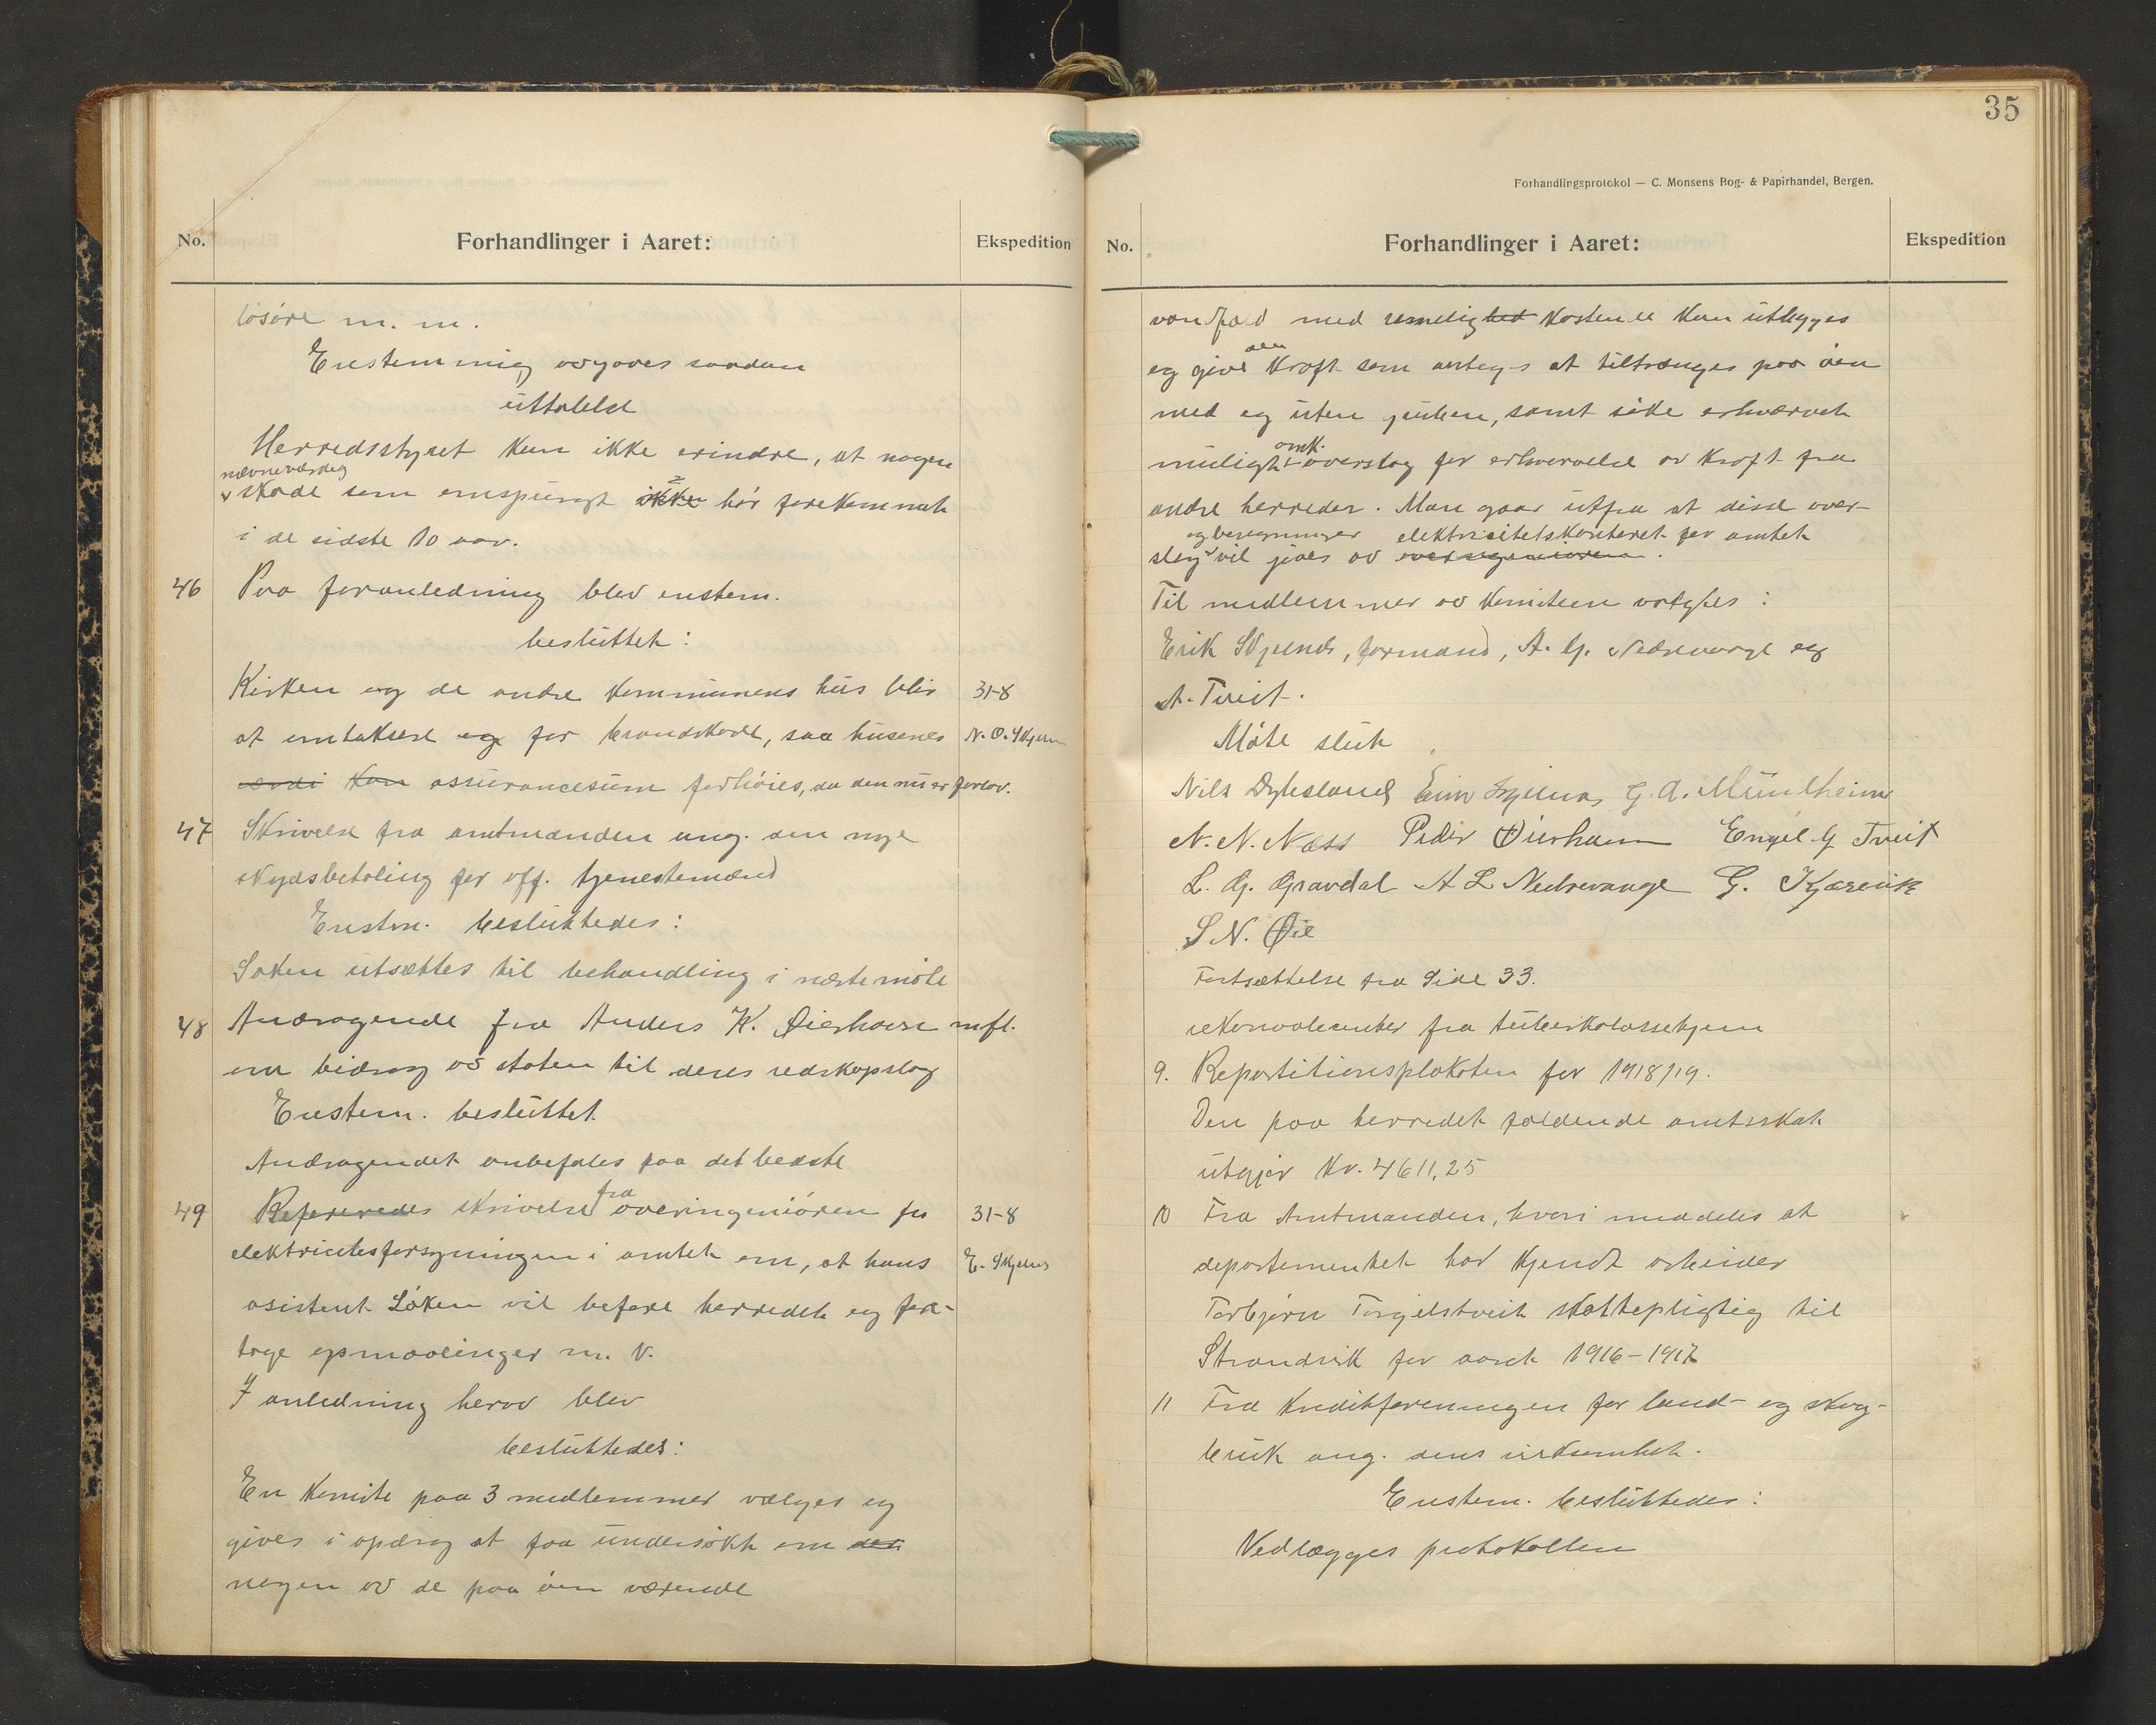 No. Forhandlinger i Aaret: Ekspedition
løsøre m. m.
Enstemmig avgaves saadan
uttalelse
Herredsstyret kan ikke erindre, at nogen
nævneværdig
skade som omspurgt ikke har forekommet
i de sidste 10 aar.
46 Paa foranledning blev enstem.
besluttet:
Kirken og de andre kommunens hus blir 31-8
at omtaksere og for brandskade, saa husenes N. O. Skjeln
værdi kan assurancesum forhöies, da den nu er for lav.
47 Skrivelse fra amtmanden ang. den nye
skydsbetaling for off. tjenestemænd
Enstm. besluttedes:
Saken utsættes til behandling i næste möte
48 Andragende fra Anders K. Øierhavn mfl.
om bidrag av staten til deres redskapslag
Enstem. besluttet
Andragendet anbefales paa det bedste
fra
49 Refereredes skrivelse overingeniören for 31-8
elektricitesforsyningen i amtet om, at hans E. Skjelnes
asistent Löken vil befare herredet og fore-
tage opmaalinger m. v.
I anledning herav blev
besluttedes:
En komite paa 3 medlemmer vælges og
gives i opdrag at faa undersökt om det
nogen av de paa öen værende
35
Forhandlingsprotokol — C. Monsens Bog- & Papirhandel, Bergen.
No. Forhandlinger i Aaret: Ekspedition
vandfald med rimelighed kostende kan utbygges
den
og give kraft som antages at tiltrænges paa öen
med og uten gruben, samt söke erhvervet
omk.
muligt overslag for erhvervelse av kraft fra
andre herreder. Man gaar utfra at disse over-
og beregninger elektricitetskontoret for amtet
slag vil gjöres av overingeniören.
Til medlemmer av komiteen valgtes:
Erik Skjelnes, formand, A. G. Nedrevaage og
A. Tveit.
Möte slut
Nils Dybsland Erik Skjelnes G. A. Müntheim
N. N. Næss Peder Øierhavn Engel G Tveit
L. G. Gravdal A L Nedrevaage G. Kjærevik
S N. Øie
Fortsættelse fra Side 33.
rekonvalecenter fra tuberkolossehjem
9. Repartitionsplakaten for 1918/19.
Den paa herredet faldende amtsskat
utgjør Kr. 4611,25
10 Fra Amtmanden, hvori meddeles at
departementet har kjendt arbeider
Torbjørn Torgilstveit skattepligtig til
Strandvik for aaret 1916-1917
11 Fra Kreditforeningen for land- og skog-
bruk ang. dens virksomhet.
Enstem. besluttedes:
Vedlægges protokollen